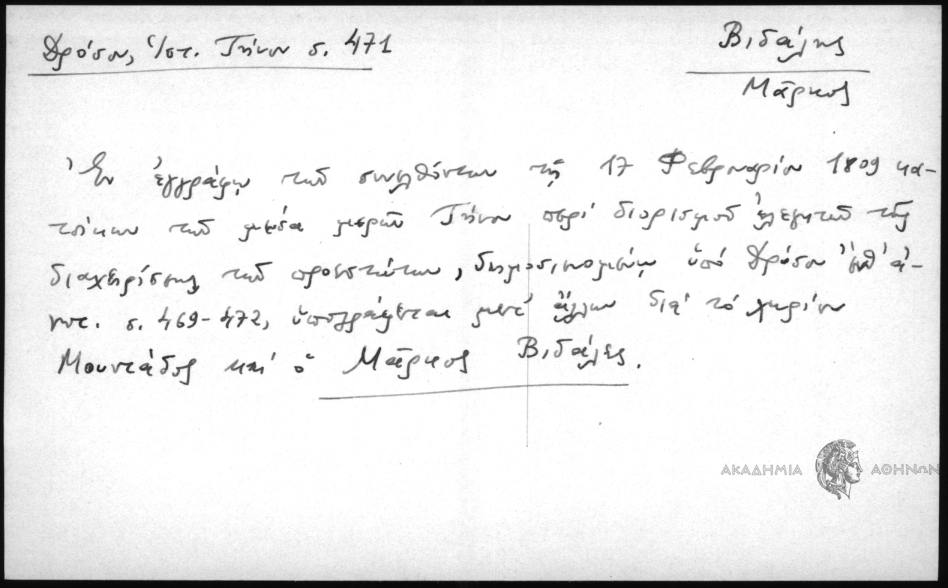 Δρόσου, Ἱστ. Τήνου σ. 471
Βιδάλης
Μᾶρκος
Ἐν ἐγγράφῳ τῶν συνελθόντων τῇ 17 Φεβρουαρίου 1809 κα-
τοίκων τῶν μερῶν Τήνου περί διορισμοῦ ἐλεγκτῶν τῆς
διαχειρίσεως τῶν προεστώτων, δημοσιευομένῳ ὑπό Δρόσου ἔνθ' ἀ-
νωτ. σ. 469-472, ὑπογράφεται μετ' ἄλλων διά τό χωρίον
Μουντάδος καί ὁ Μᾶρκος Βιδάλες.
ΑΚΑΔΗΜΙΑ ΑΘΗΝΩΝ